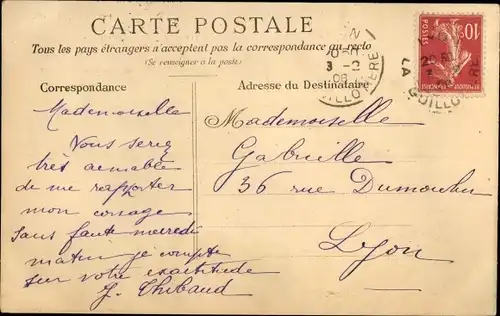 CARTE POSTALE
Tous les pays étrangers n'acceptent pas la correspondance au recto
(Se renseigner à la poste)
Correspondance
Adresse du Destinataire
Mademoiselle
Vous serez
très aimable
de me rapporter
mon corsage
sans faute mercredi
matin je compte
sur votre exactitude
J. Thibaud
Mademoiselle
Gabrielle
36 rue Dumoulin
Lyon
3 -2
08
LA GUILLOTIERE
POSTES
10
REPUBLIQUE FRANÇAISE